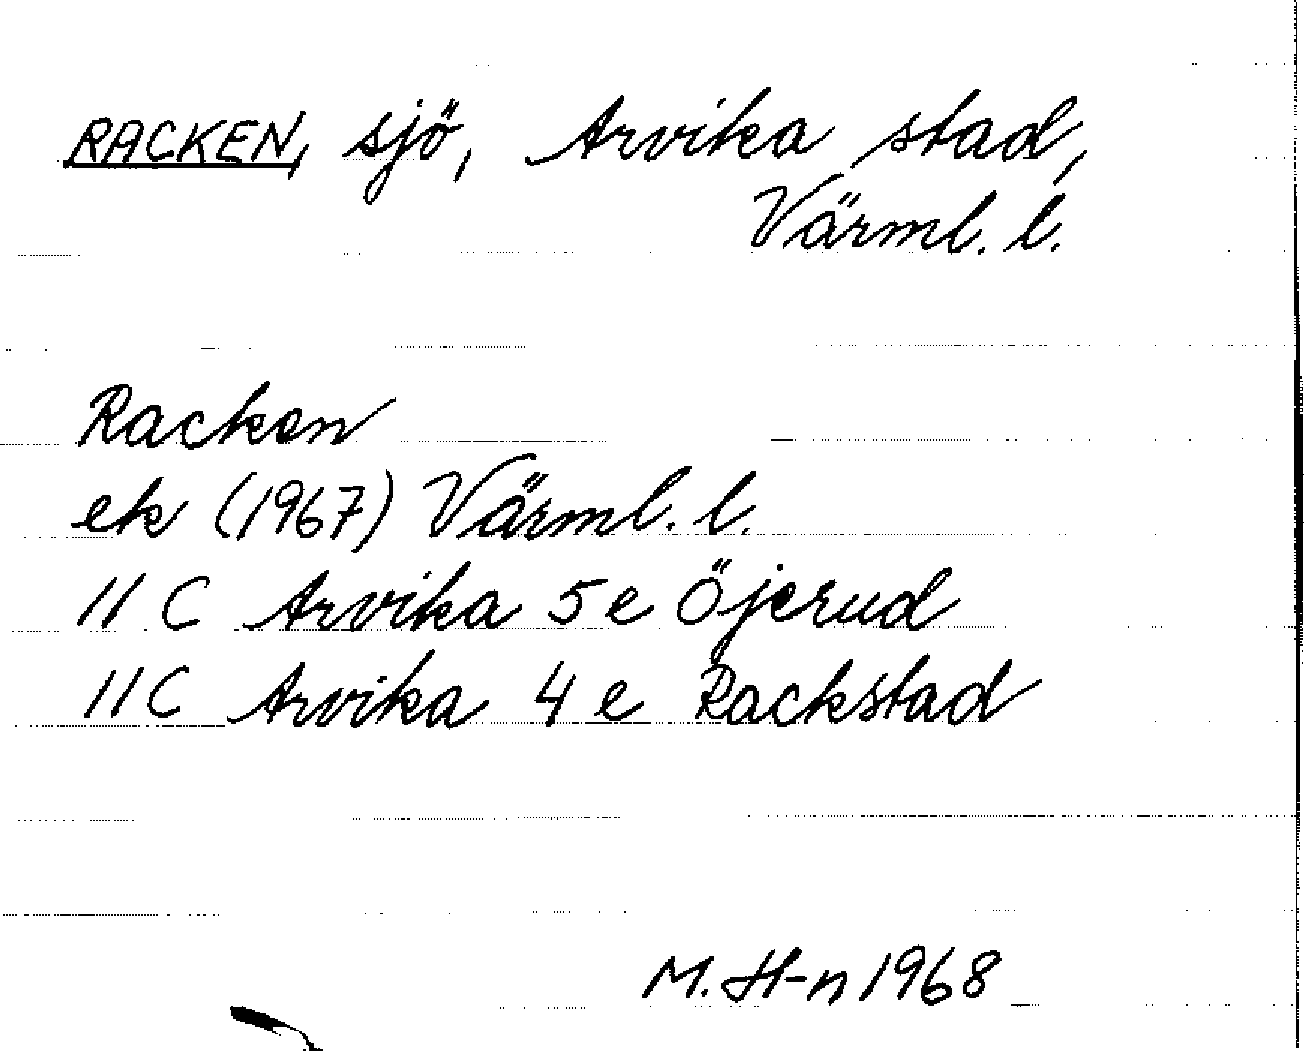 RACKEN, sjö, Arvika stad,
Värml. l.
Racken
ek (1967) Värml. l.
11 C Arvika 5 e Öjerud
11 C Arvika 4 e Rackstad
M. H-n 1968